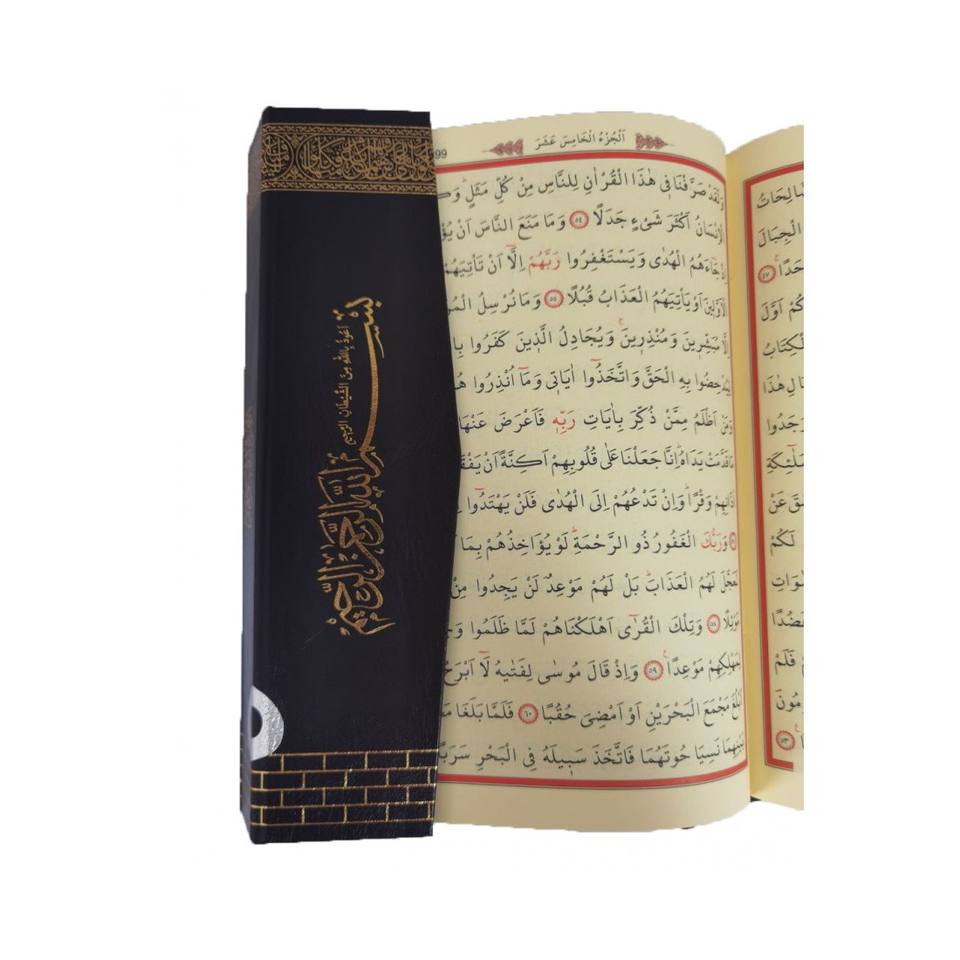 اَعُوذُ بِاللّٰهِ مِنَ الشَّيْطَانِ الرَّجِيمِ
بِسْمِ اللّٰهِ الرَّحْمٰنِ الرَّحِيمِ
99
اَلْجُزْءُ الْخَامِسَ عَشَرَ
وَلَقَدْ صَرَّفْنَا فِي هٰذَا الْقُرْاٰنِ لِلنَّاسِ مِنْ كُلِّ مَثَلٍ
الْاِنْسَانُ اَكْثَرَ شَيْءٍ جَدَلًا ٥٤ وَمَا مَنَعَ النَّاسَ اَنْ
جَاءَهُمُ الْهُدٰى وَيَسْتَغْفِرُوا رَبَّهُمْ اِلَّا اَنْ تَأْتِيَهُمْ
الْاَوَّلِينَ اَوْ يَأْتِيَهُمُ الْعَذَابُ قُبُلًا ٥٥ وَمَا نُرْسِلُ
اِلَّا مُبَشِّرِينَ وَمُنْذِرِينَ وَيُجَادِلُ الَّذِينَ كَفَرُوا
لِيُدْحِضُوا بِهِ الْحَقَّ وَاتَّخَذُوا اٰيَاتِي وَمَا اُنْذِرُوا
وَمَنْ اَظْلَمُ مِمَّنْ ذُكِّرَ بِاٰيَاتِ رَبِّهِ فَاَعْرَضَ عَنْهَا
مَا قَدَّمَتْ يَدَاهُ اِنَّا جَعَلْنَا عَلٰى قُلُوبِهِمْ اَكِنَّةً اَنْ
اٰذَانِهِمْ وَقْرًا وَاِنْ تَدْعُهُمْ اِلَى الْهُدٰى فَلَنْ يَهْتَدُوا
وَرَبُّكَ الْغَفُورُ ذُو الرَّحْمَةِ لَوْ يُؤَاخِذُهُمْ بِمَا
لَعَجَّلَ لَهُمُ الْعَذَابَ بَلْ لَهُمْ مَوْعِدٌ لَنْ يَجِدُوا مِنْ
مَوْئِلًا ٥٨ وَتِلْكَ الْقُرٰى اَهْلَكْنَاهُمْ لَمَّا ظَلَمُوا
لِمَهْلِكِهِمْ مَوْعِدًا ٥٩ وَاِذْ قَالَ مُوسٰى لِفَتٰيهُ لَا اَبْرَحُ
اَبْلُغَ مَجْمَعَ الْبَحْرَيْنِ اَوْ اَمْضِيَ حُقُبًا ٦٠ فَلَمَّا بَلَغَا
بَيْنِهِمَا نَسِيَا حُوتَهُمَا فَاتَّخَذَ سَبِيلَهُ فِي الْبَحْرِ سَرَبًا
الْجِبَالَ
٤٧
اَوَّلَ
الْكِتَابُ
هٰذَا
عَنْ
لَكُمْ
فَلَمْ
٥٣